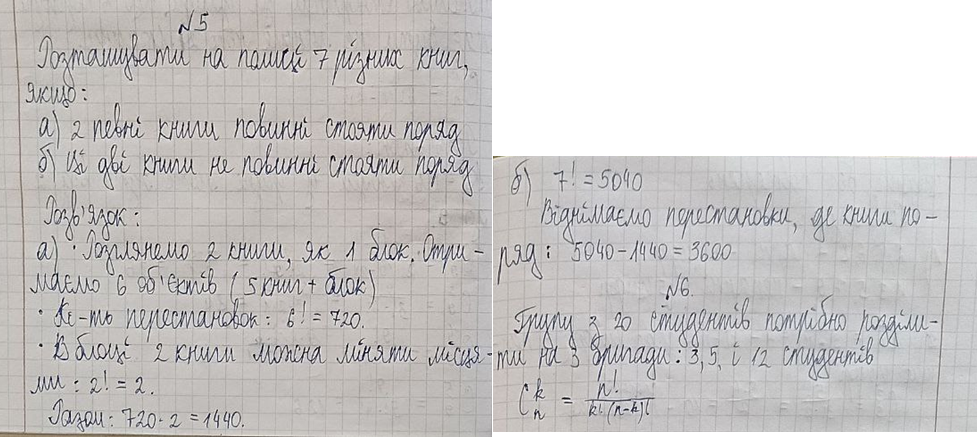 №5
Розташувати на полиці 7 різних книг,
якщо:
а) 2 певні книги повинні стояти поряд
б) Ці дві книги не повинні стояти поряд
Розв'язок:
а) · Розглянемо 2 книги, як 1 блок. Отри-
маємо 6 об'єктів (5 книг + блок)
· Кі-ть перестановок: 6! = 720.
· В блоці 2 книги можна міняти місця-
ми: 2! = 2.
Разом: 720·2 = 1440.
б) 7! = 5040
Віднімаємо перестановки, де книги по-
ряд: 5040-1440 = 3600
№6.
Групу з 20 студентів потрібно розділи-
ти на 3 бригади: 3, 5, і 12 студентів
C_n^k = n! / k!·(n-k)!